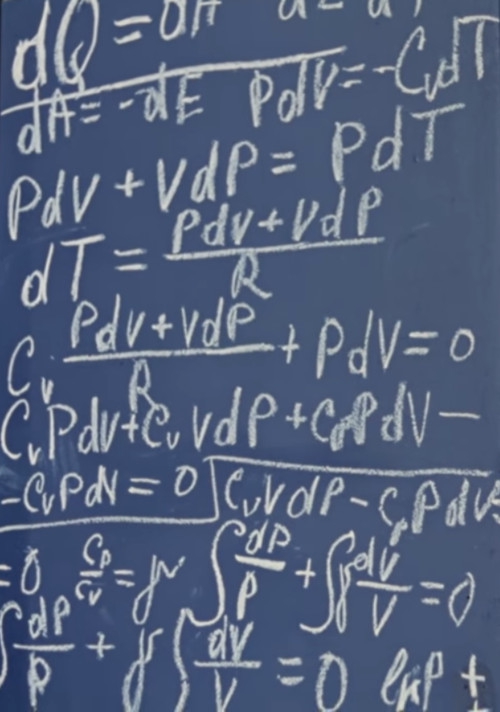 dQ = dA
dA = -dE PdV = -CvdT
PdV + VdP = PdT
dT = (PdV + VdP)/R
Cv · (PdV + VdP)/R + PdV = 0
CvPdV + CvVdP + CpPdV -
-CvPdV = 0 CvVdP - CpPdV
= 0 Cp/Cv = γ ∫dP/P + ∫γdV/V = 0
∫dP/P + γ∫dV/V = 0 lnP +